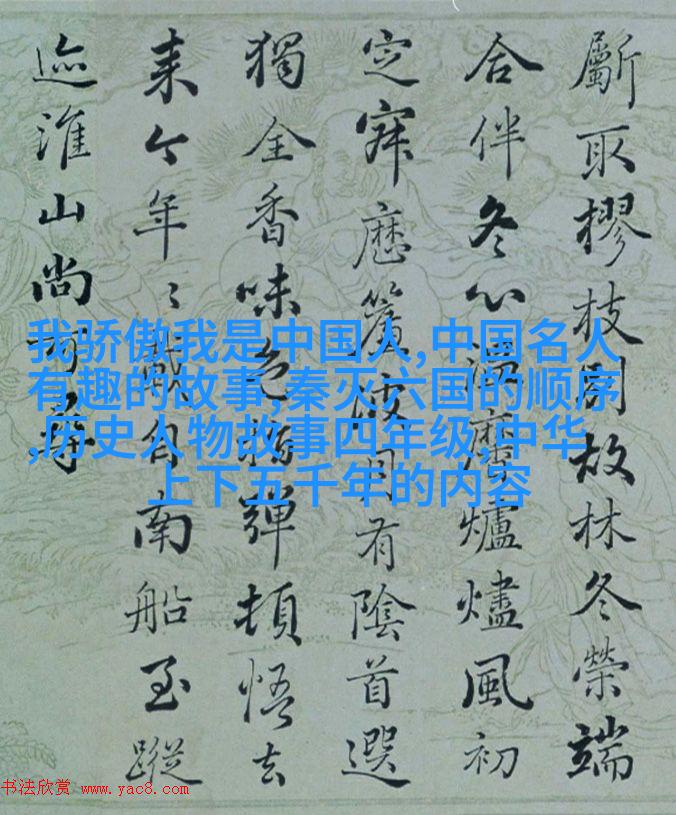 斸取樛枝閒故林冬榮端
合伴冬心爐燼風初
定寐歷簷月有陰首選
獨全香味色彈頓悟去
来今年〻南船至蹤
迹淮山尚可尋
我骄傲我是中国人,中国名人
有趣的故事,秦灭六国的顺序
,历史人物故事四年级,中华
上下五千年的内容
书法欣赏 www.yac8.com